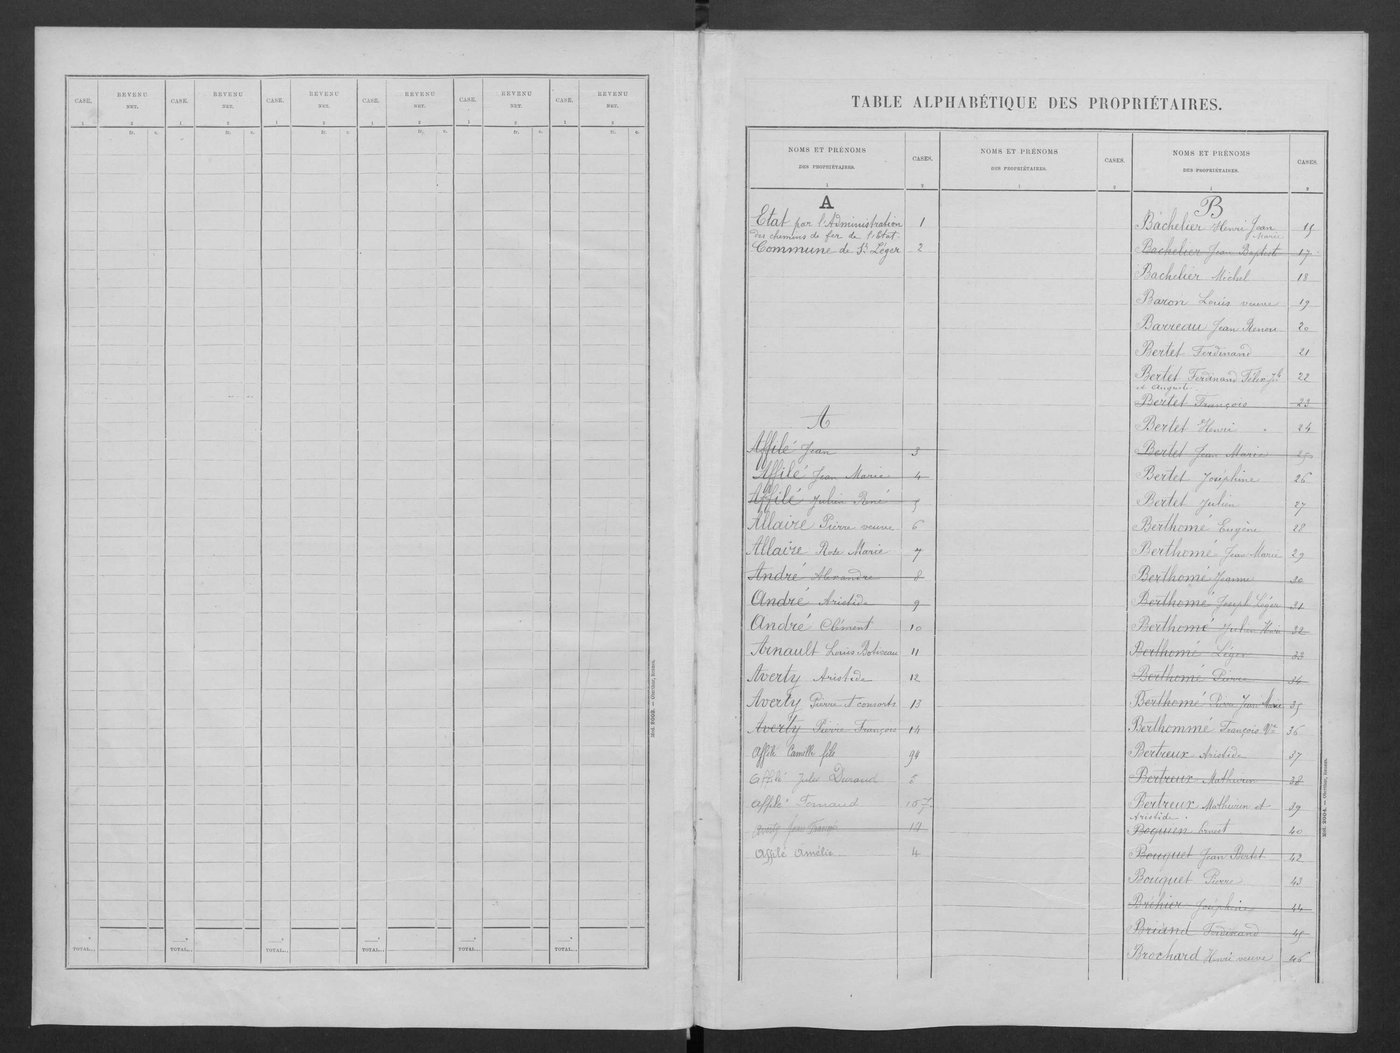 CASE. REVENU NET. CASE. REVENU NET. CASE. REVENU NET. CASE. REVENU NET. CASE. REVENU NET. CASE. REVENU NET.
1 2 1 2 1 2 1 2 1 2 1 2
fr. c. fr. c. fr. c. fr. c. fr. c. fr. c.
TOTAL... TOTAL... TOTAL... TOTAL... TOTAL... TOTAL...
Mod. 2003. — Oberthur, Rennes.
TABLE ALPHABÉTIQUE DES PROPRIÉTAIRES.
NOMS ET PRÉNOMS
DES PROPRIÉTAIRES.
CASES.
1 2
A
Etat par l'Administration 1
des chemins de fer de l'Etat
Commune de St Léger 2
A
Affilé Jean 3
Affilé Jean Marie 4
Affilé Julien René 5
Allaire Pierre veuve 6
Allaire Rose Marie 7
André Alexandre 8
André Aristide 9
André Clément 10
Arnault Louis Botiveau 11
Averty Aristide 12
Averty Pierre et consorts 13
Averty Pierre François 14
Affilé Camille fils 94
Affilé Jules Durand 5
Affilé Fernand 107
Averty Jean François 12
Affilé Amélie 4
NOMS ET PRÉNOMS
DES PROPRIÉTAIRES.
CASES.
1 2
NOMS ET PRÉNOMS
DES PROPRIÉTAIRES.
CASES.
1 2
B
Bachelier Henri Jean 15
Marie
Bachelier Jean Baptiste 17
Bachelier Michel 18
Baron Louis veuve 19
Barreau Jean Renou 20
Bertet Ferdinand 21
Bertet Ferdinand Félix Jh 22
et Auguste
Bertet François 23
Bertet Henri 24
Bertet Jean Marie 25
Bertet Joséphine 26
Bertet Julien 27
Berthomé Eugène 28
Berthomé Jean Marie 29
Berthomé Jeanne 30
Berthomé Joseph Léger 31
Berthomé Julien 32
Berthomé Léger 33
Berthomé Pierre 34
Berthomé Pierre Jean Marie 35
Berthommé François Vve 36
Bertreux Aristide 37
Bertreux Mathurin 38
Bertreux Mathurin et 39
Aristide
Boquien Ernest 40
Bouquet Jean Bertet 42
Bouquet Pierre 43
Bréhier Joséphine 44
Briand Ferdinand 45
Brochard Henri veuve 46
Mod. 2004. — Oberthur, Rennes.